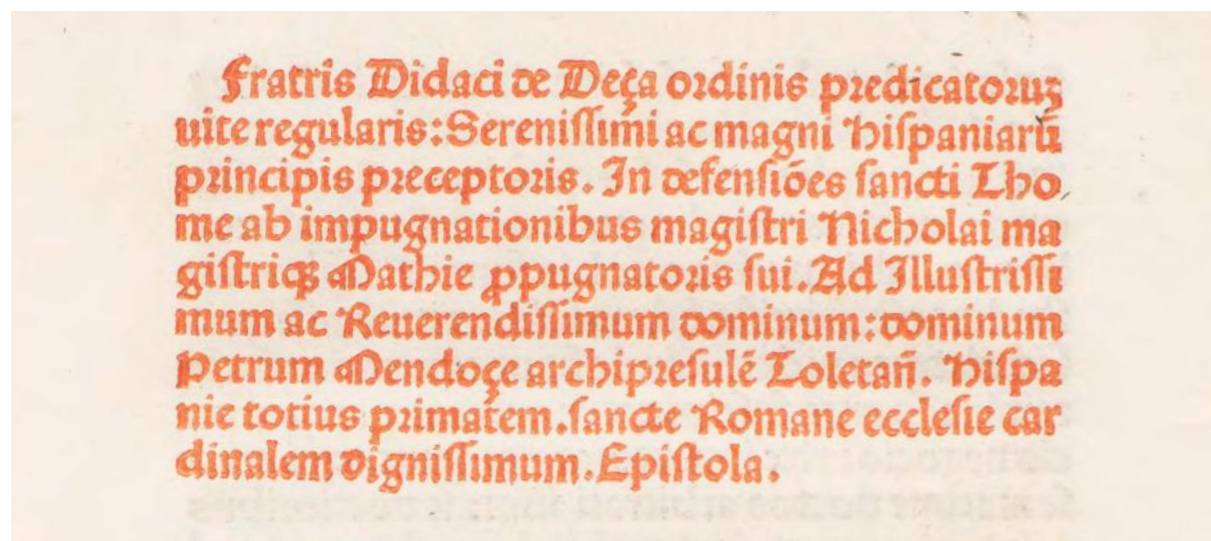 Fratris Didaci de Deça ordinis predicatoruꝫ
uite regularis: Sereniſſimi ac magni hiſpaniarū
principis preceptoris. In defenſiões ſancti Tho
me ab impugnationibus magiſtri Nicholai ma
giſtriqꝫ Mathie ꝓpugnatoris ſui. Ad Illuſtriſſi
mum ac Reuerendiſſimum dominum: dominum
Petrum Mendoçe archipreſulē Toletan̄. hiſpa
nie totius primatem. ſancte Romane eccleſie car
dinalem digniſſimum. Epiſtola.